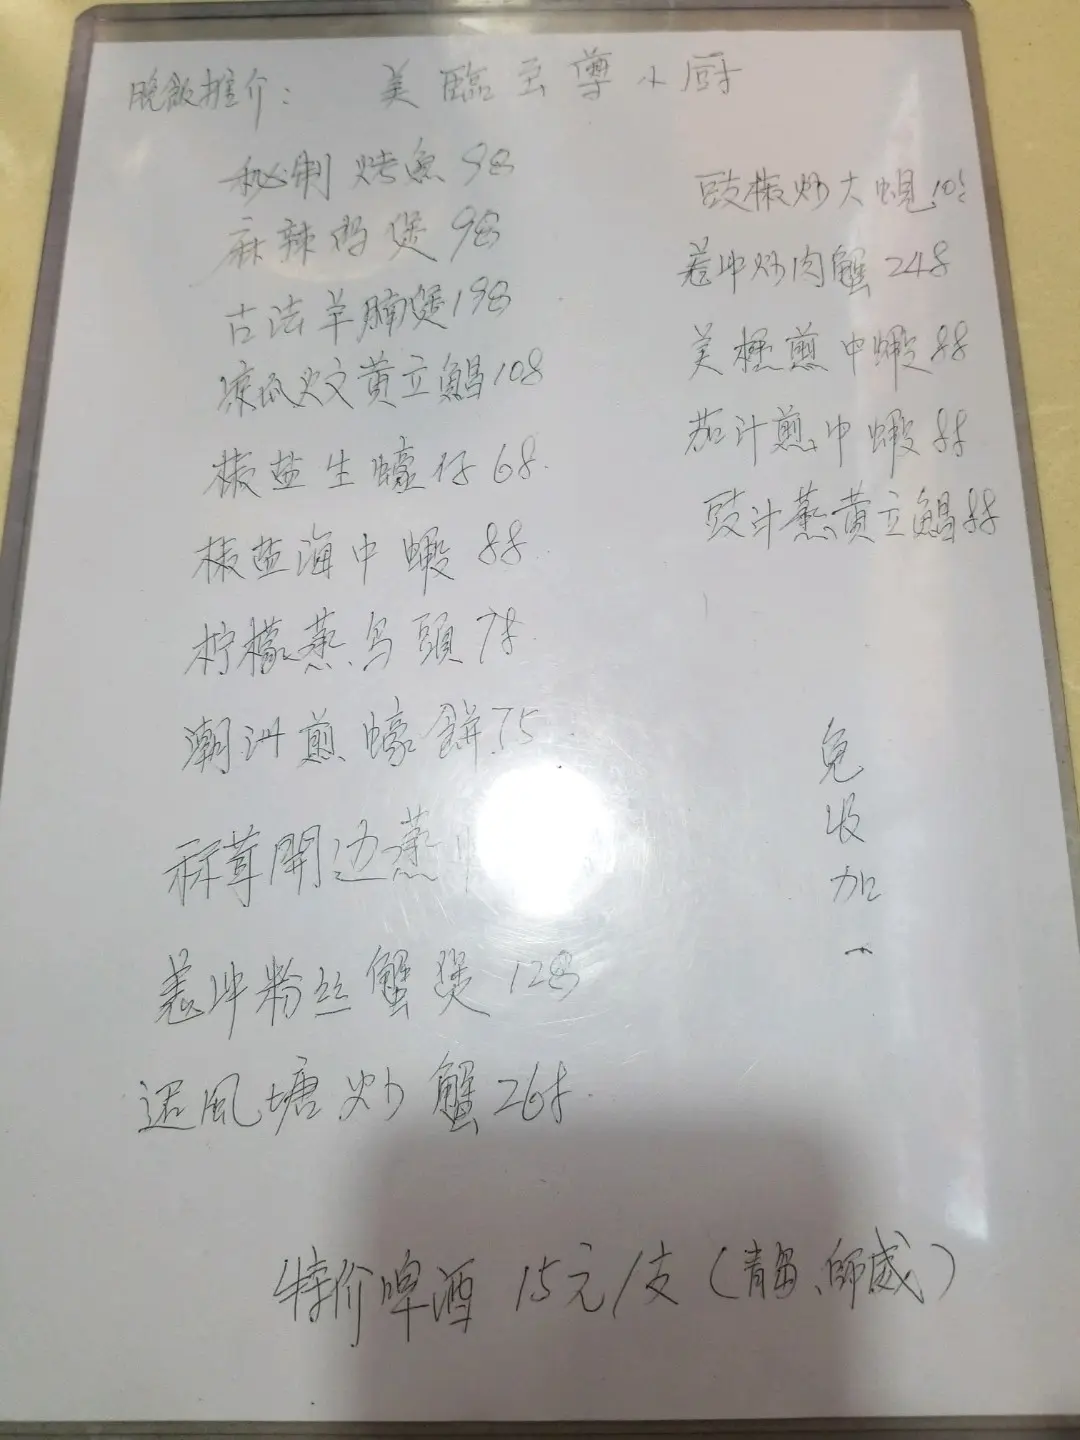 晚飯推介： 美臨至尊小厨
秘制烤魚 98
麻辣鸡煲 98
古法羊腩煲 198
凉瓜炆黄立鯧 108
椒盐生蠔仔 68
椒盐海中蝦 88
柠檬蒸烏頭 78
潮州煎蠔餅 75
開边蒸
羗冲粉丝蟹煲 128
避風塘炒蟹 268
豉椒炒大蜆
羗冲炒肉蟹 248
美極煎中蝦 88
茄汁煎中蝦 88
豉汁蒸黄立鯧 88
免收加一
特价啤酒 15元/支（青島、師威）